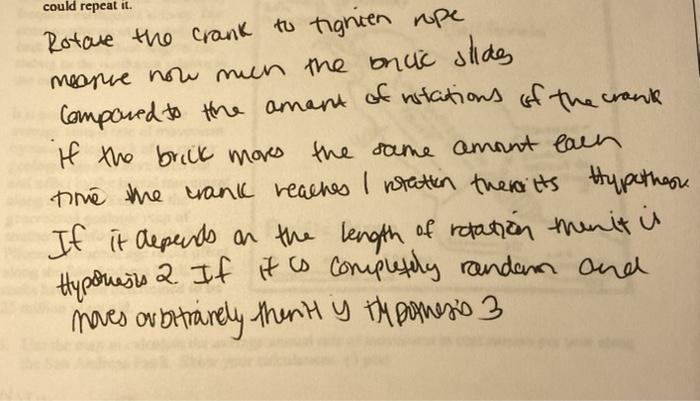 could repeat it.
Rotate the crank to tighten rope
measure how much the brick slides
Compared to the amant of rotations of the crank
if the brick moves the same amant each
time the crank reaches 1 rotation then its Hypothesis
If it depends on the length of rotation then it is
Hypothesis 2 If it is completely random and
moves arbitrarely then it is Hypothesis 3